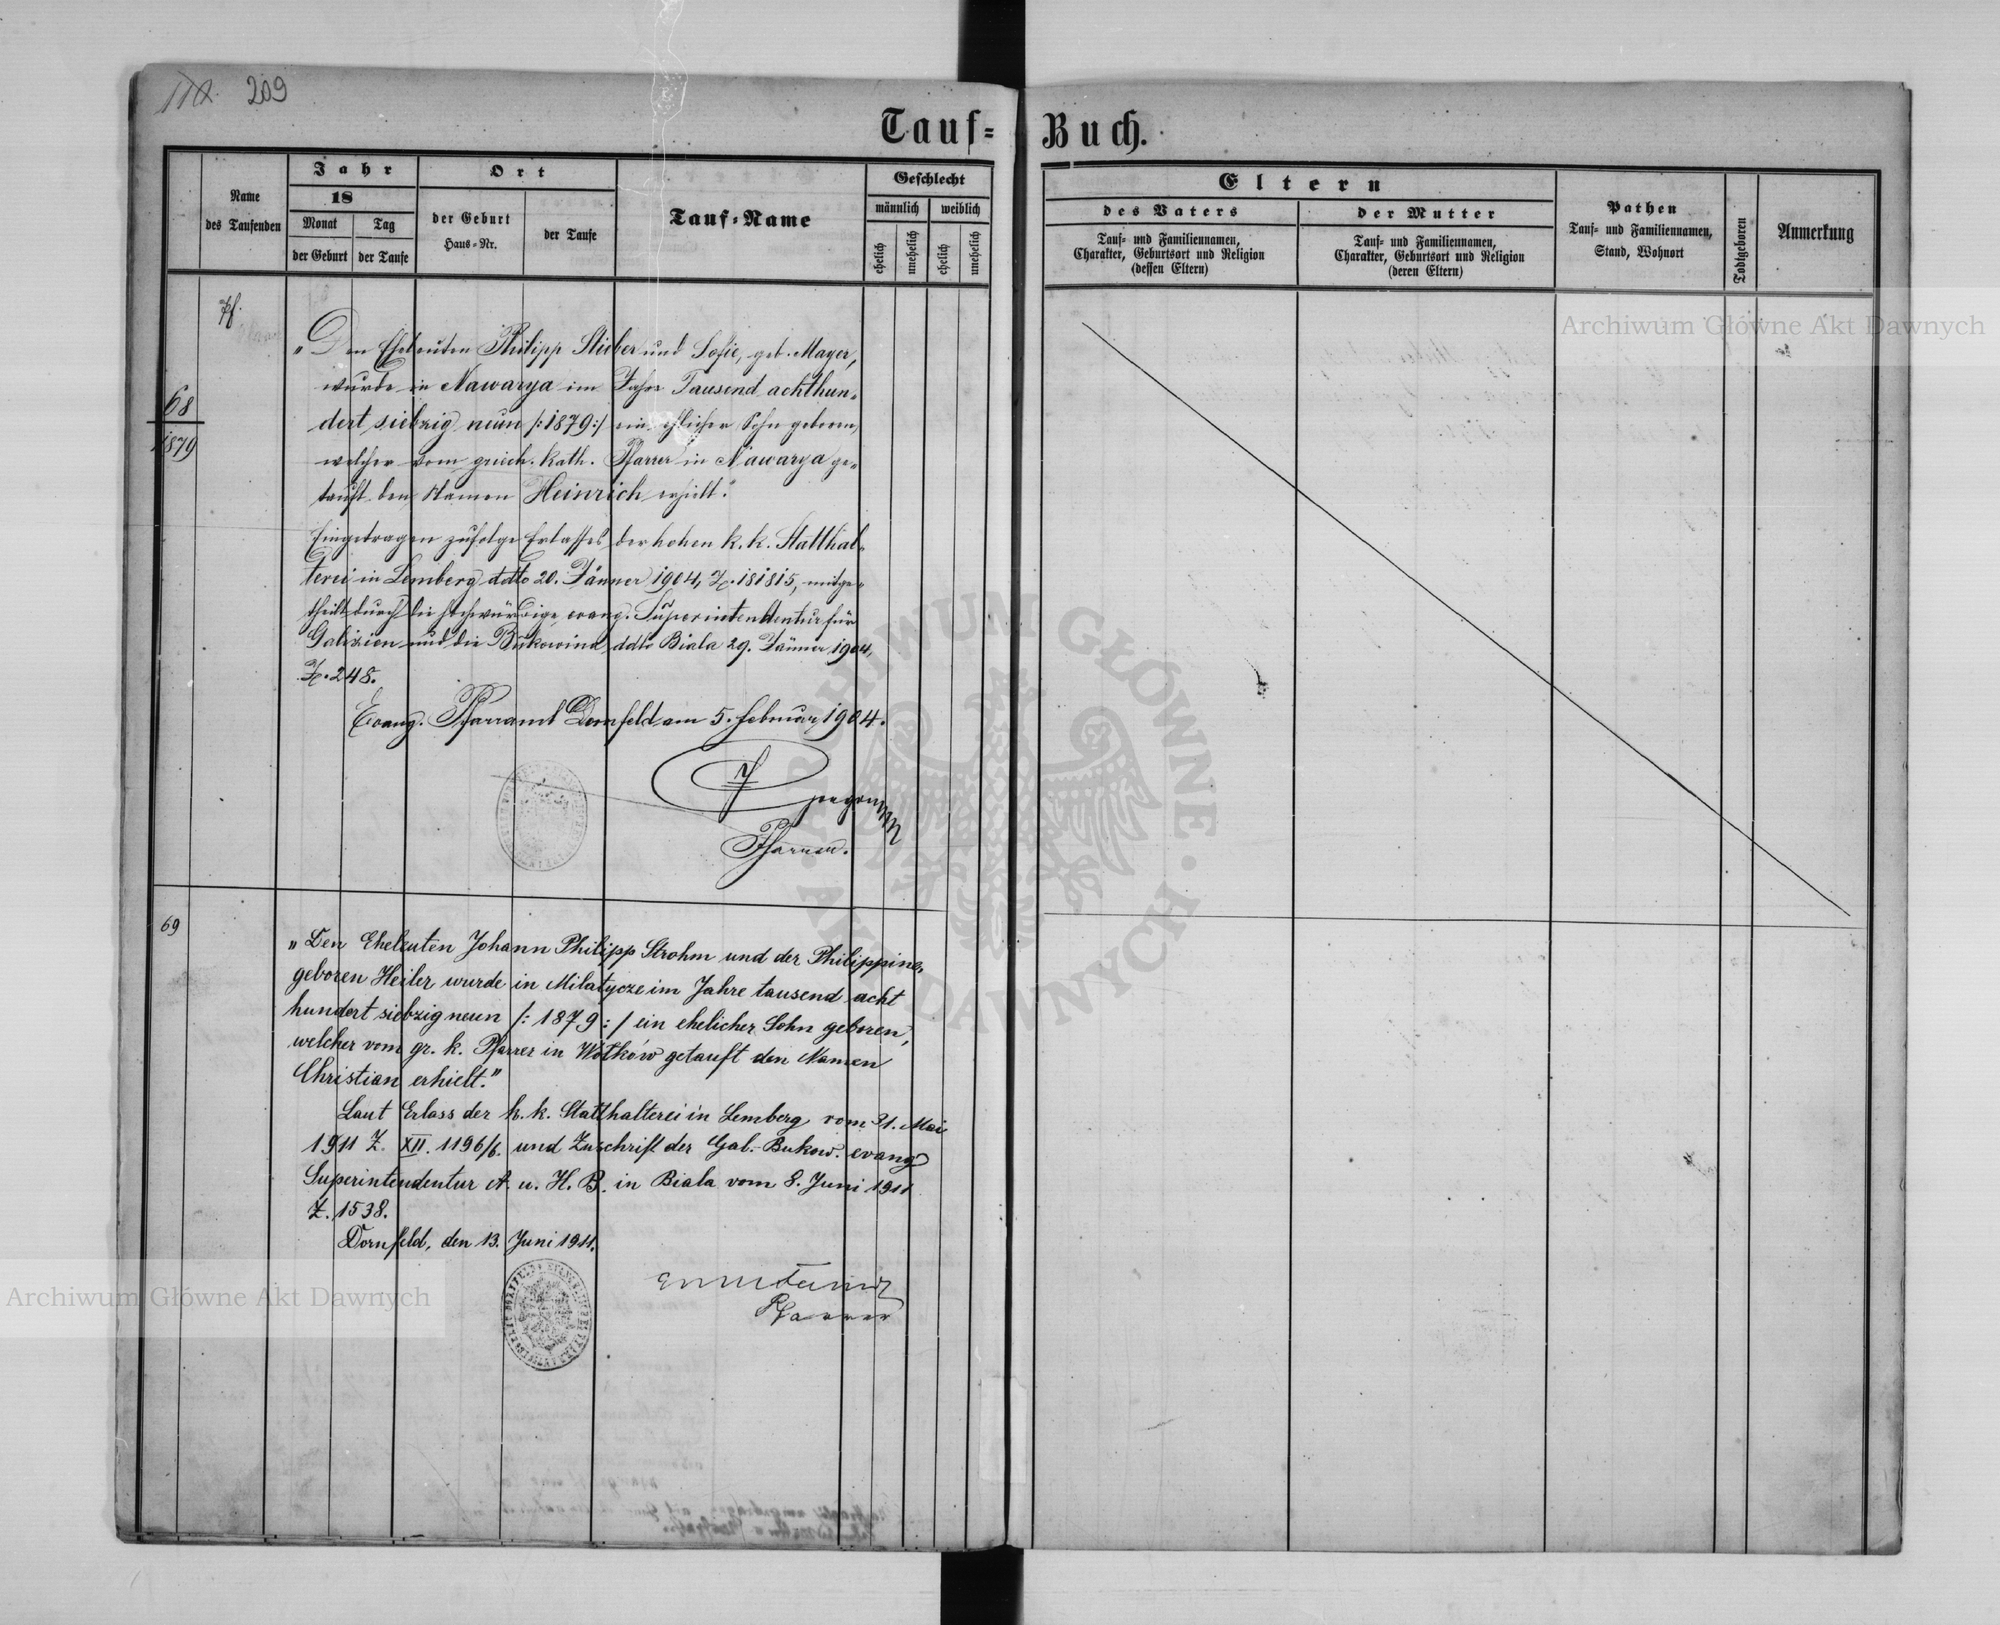 209
Tauf- Buch.
Name des Taufenden
Jahr
18
Monat
Tag
der Geburt
der Taufe
Ort
der Geburt
Haus-Nr.
der Taufe
Tauf-Name
Geschlecht
männlich
weiblich
ehelich
unehelich
ehelich
unehelich
Eltern
des Vaters
Tauf- und Familiennamen,
Charakter, Geburtsort und Religion
(dessen Eltern)
der Mutter
Tauf- und Familiennamen,
Charakter, Geburtsort und Religion
(deren Eltern)
Pathen
Tauf- und Familiennamen,
Stand, Wohnort
Todtgeboren
Anmerkung
68
1879
„Den Eheleuten Philipp Stieber und Sofie, geb. Mayer,
wurde in Nawarya im Jahre Tausend achthun-
dert siebzig neun /:1879:/ ein ehlicher Sohn geboren,
welcher vom griech. kath. Pfarrer in Nawarya ge-
tauft den Namen Heinrich erhielt."
Eingetragen zufolge Erlasses der hohen k. k. Statthal-
terei in Lemberg ddto 20. Jänner 1904, Z. 181815, mitge-
theilt durch die hochwürdige evang. Superintendentur für
Galizien und die Bukowina ddto Biala 29. Jänner 1904,
Z. 248.
Evang. Pfarramt Dornfeld am 5. Februar 1904.
Pfarrer.
69
„Den Eheleuten Johann Philipp Strohm und der Philippine,
geboren Heiler wurde in Milatycze im Jahre tausend acht
hundert siebzig neun /: 1879 :/ ein ehelicher Sohn geboren,
welcher vom gr. k. Pfarrer in Wołków getauft den Namen
Christian erhielt."
Laut Erlass der k. k. Statthalterei in Lemberg vom 31. Mai
1911 Z. XII. 1196/6. und Zuschrift der Gal.-Bukow. evang
Superintendentur A. u. H. B. in Biala vom 8. Juni 1911
Z. 1538.
Dornfeld, den 13. Juni 1911.
Pfarrer
Archiwum Główne Akt Dawnych
Archiwum Główne Akt Dawnych
ARCHIWUM GŁÓWNE · AKT DAWNYCH ·